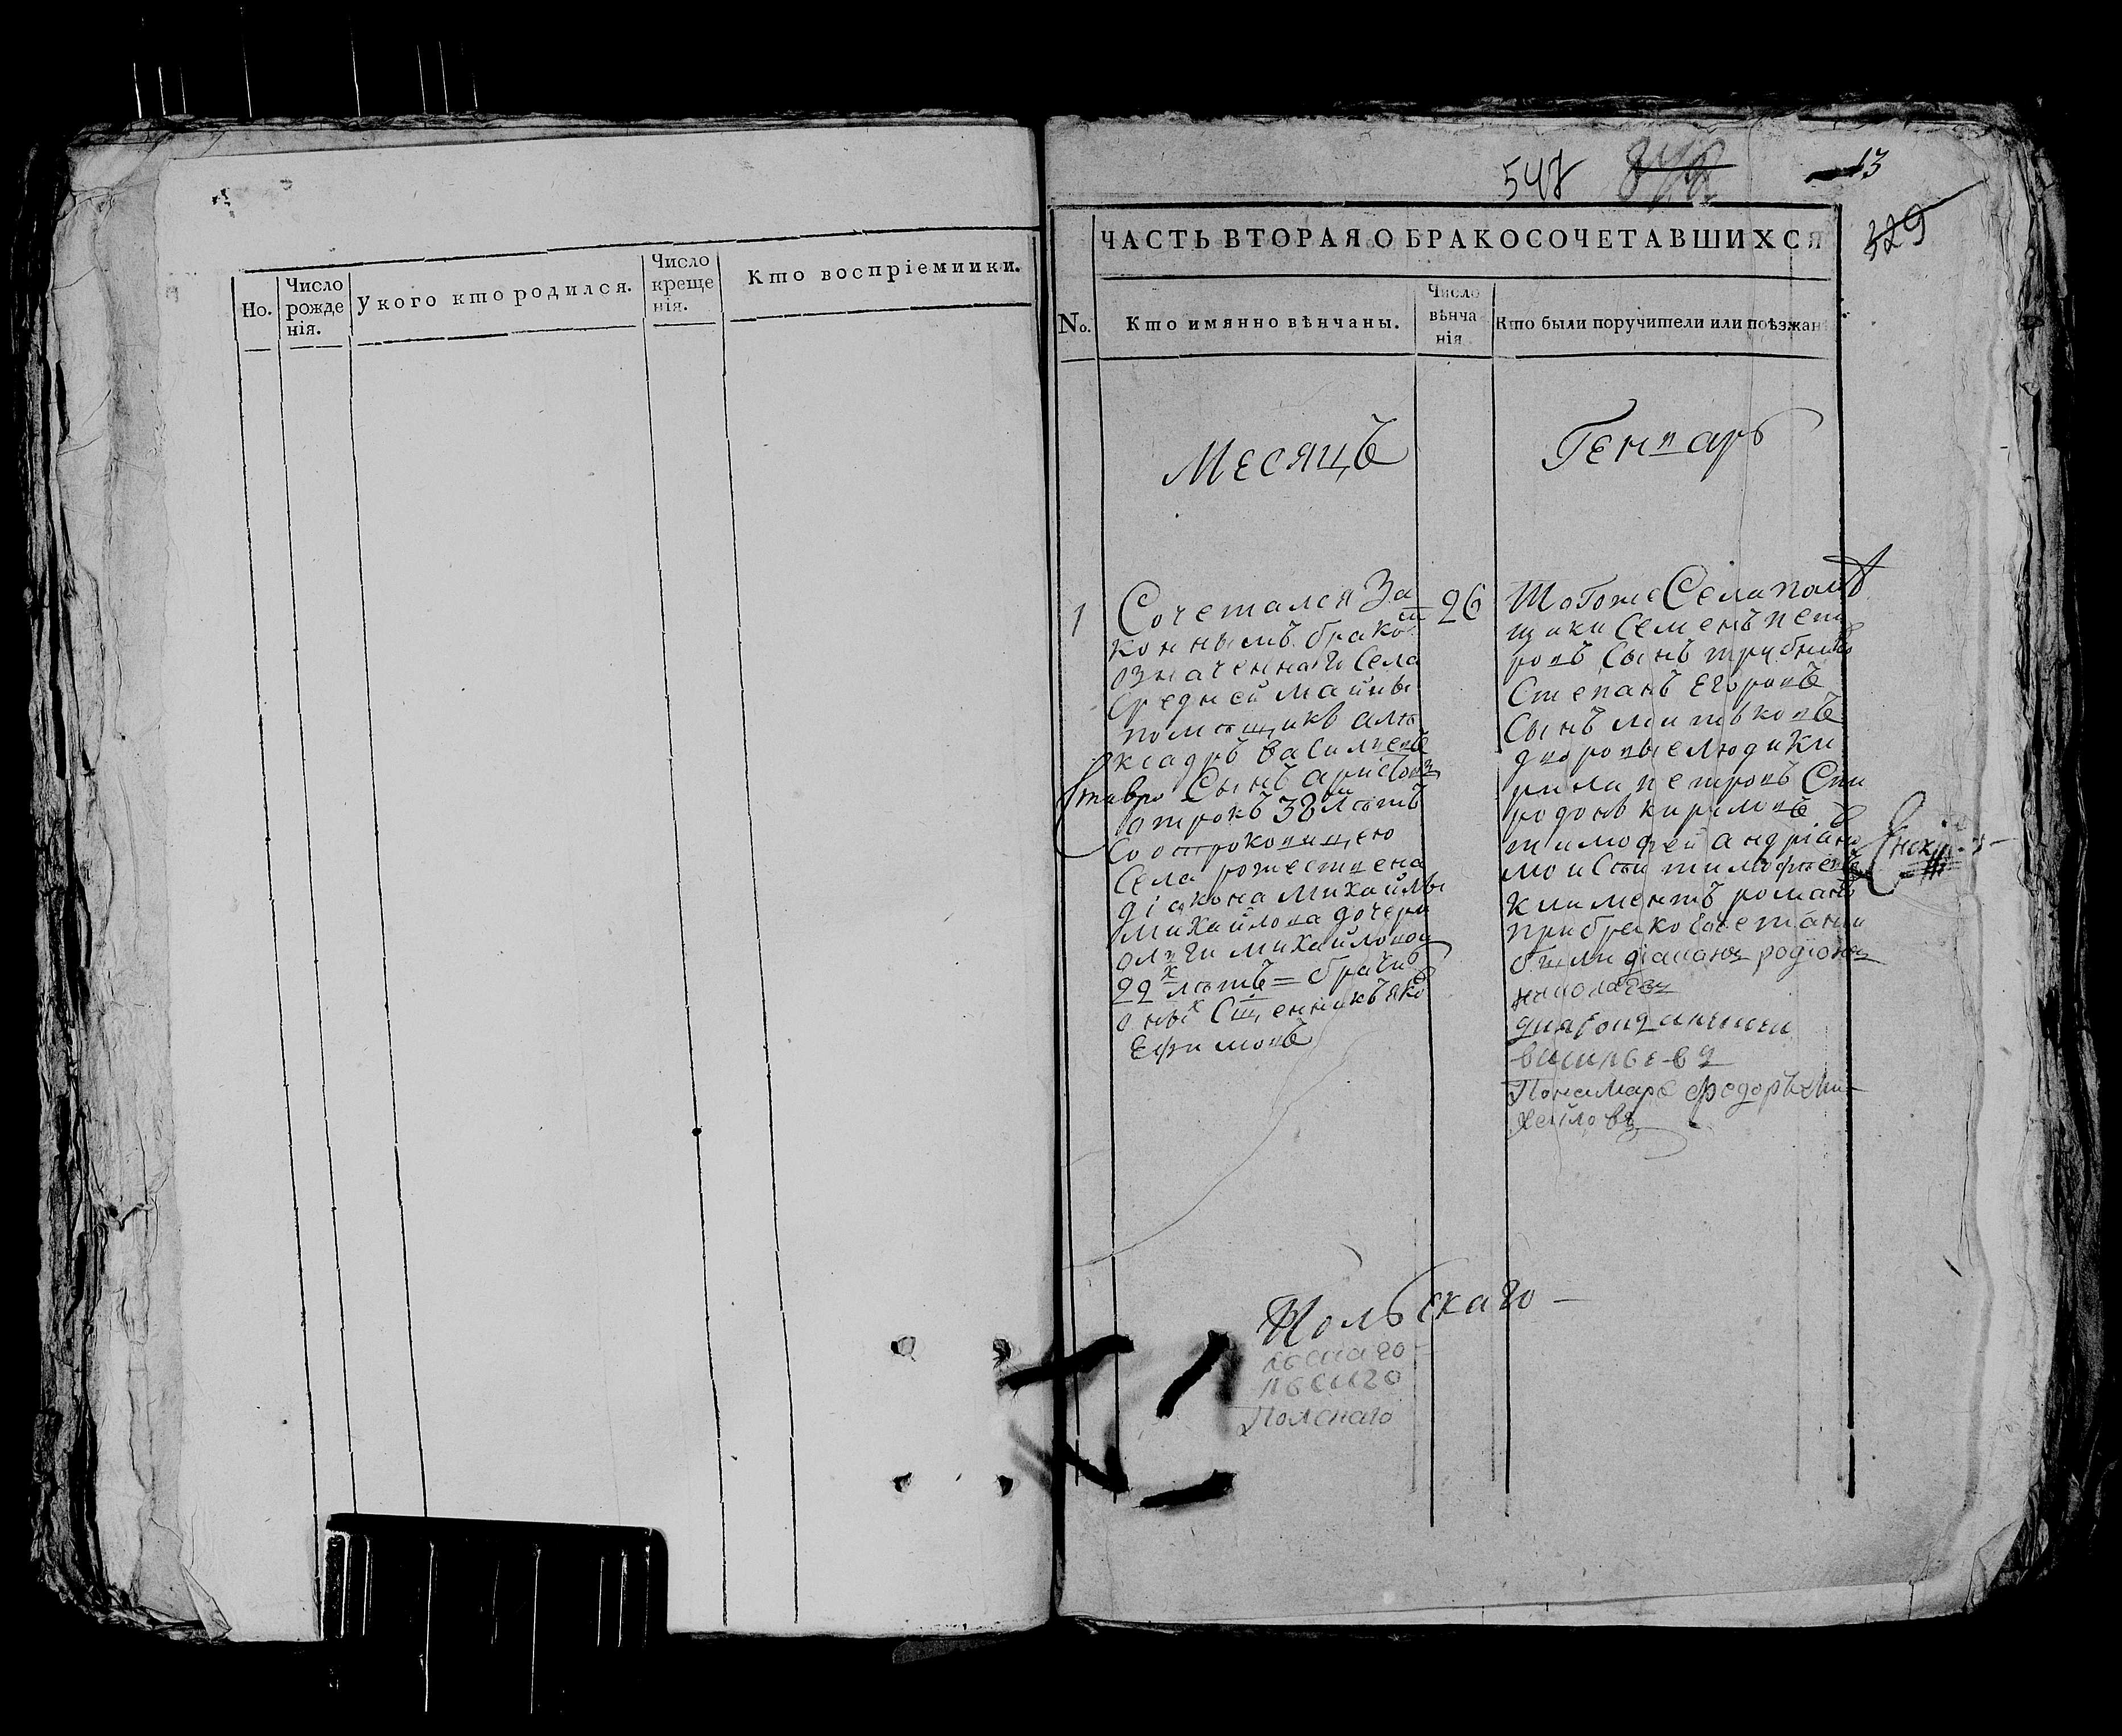 Но.
Число рожденія.
У кого кто родился.
Число крещенія.
Кто воспріемники.
547
13
329
ЧАСТЬ ВТОРАЯ О БРАКОСОЧЕТАВШИХСЯ
No.
Кто имянно вѣнчаны.
Число вѣнчанія
Кто были поручители или поѣзжан
Месяцъ
Генварь
1
Сочетался За
коннымъ брако
означеннаго Села
Средней майны
помѣщикъ алѣ
ксадръ Василиевъ
Сынъ
отрокъ 38 лѣтъ
Со отроковицею
Села рожествена
діакона михаилы
михайлова дочери
олги михайловои
22х лѣтъ = брачи
оных Сщенникъ яко
Ефимовъ
26
Тогоже Села помѣ
щики Семенъ пет
ровъ Сынъ
Степанъ Егоровъ
Сынъ
дворовые люди ки
рила петровъ Спи
родонъ кириловъ
тимофеи андріяно
моисеи тимофѣевъ
климентъ романо
при брако сочетани
были діаконъ родіонъ
николаевъ
васильевъ
Пономарь Федоръ Ми
хайловъ
Польскаго
льскаго
льскаго
Полскаго